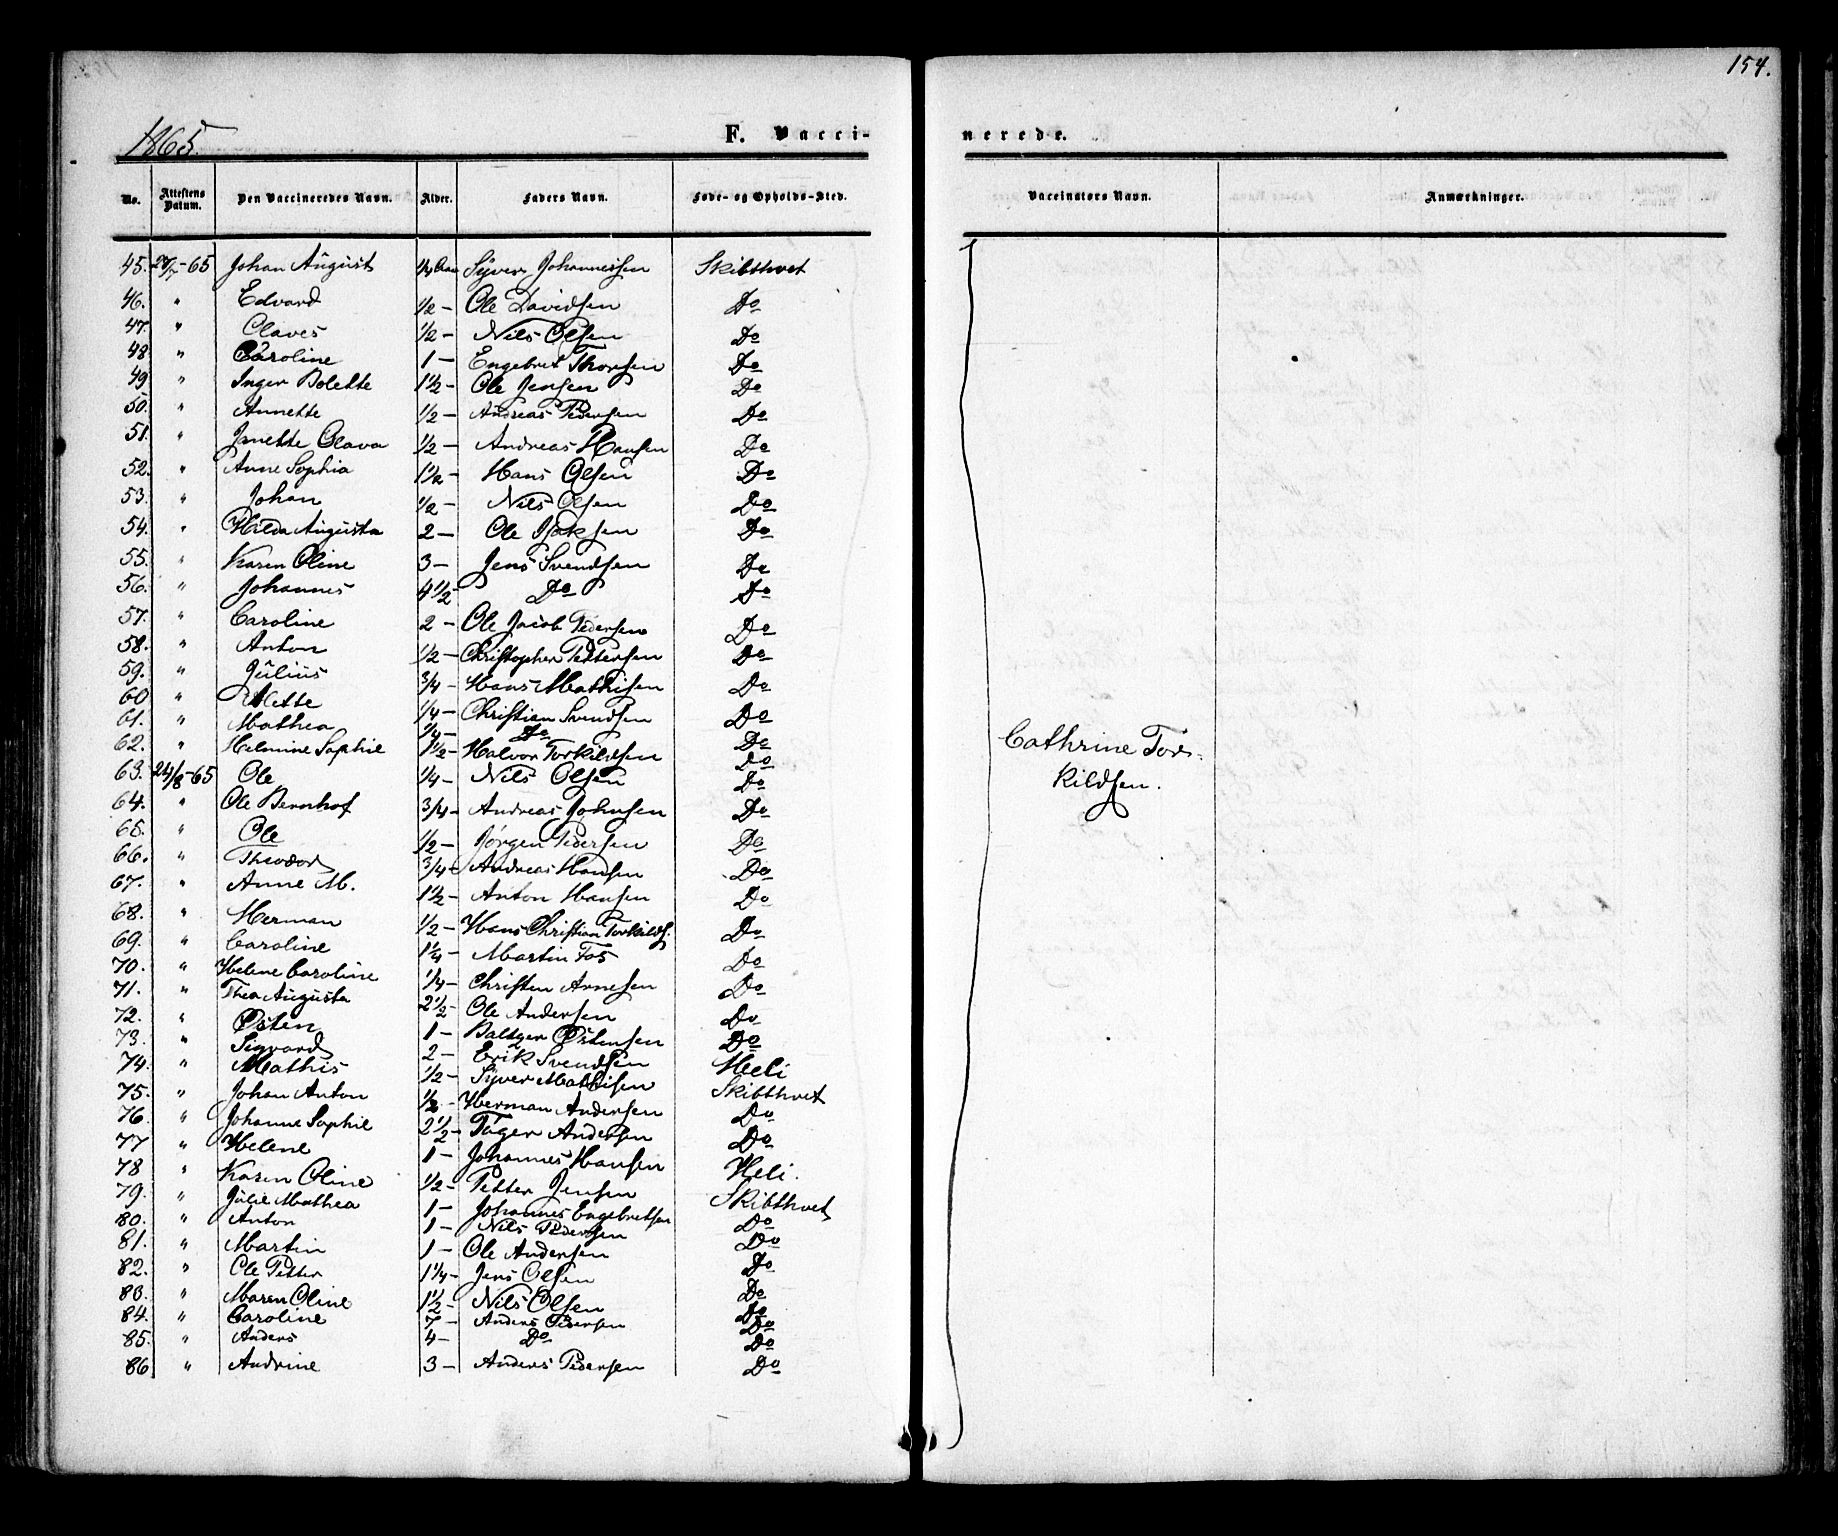 154.
1865.
F. Vaccinerede.
No. Attestens Datum. Den Vaccineredes Navn. Alder. Faders Navn. Føde- og Opholds-Sted. Vaccinators Navn. Anmærkninger.
45. 27/7-65 Johan August 1/4 Aar Syver Johannessen Skibthvet
46. " Edvard 1/2 — Ole Davidsen Do
47. " Claves 1/2 — Nils Olsen Do
48 " Caroline 1 — Engebret Thorsen Do
49 " Inger Bolette 1 1/2 — Ole Jensen Do
50. " Annette 1/2 — Andreas Pedersen Do
51. " Janette Olava 1/2 — Andreas Hansen Do
52. " Anne Sophia 1 1/2 — Hans Olsen Do
53. " Johan 1/2 — Nils Olsen Do
54. " Hilda Augusta 2 — Ole Isaksen Do
55. " Karen Oline 3 — Jens Svendsen Do
56. " Johannes 4 1/2 Do Do
57. " Caroline 2 — Ole Jacob Pedersen Do
58. " Anton 1/2 — Christopher Pettersen Do
59. " Julius 3/4 — Hans Mathisen Do
60 " Alette 1/4 — Christian Svendsen Do
61. " Mathea 1/4 — Do Do
62. " Helmine Sophie 1 1/2 — Halvor Torkildsen Do
63. 24/8-65 Ole 1/4 — Nils Olsen Do
64. " Ole Bernhof 3/4 — Andreas Johnsen Do
65. " Ole 1/2 — Jørgen Pedersen Do
66. " Theodor 3/4 — Andreas Hansen Do
67. " Anne M. 1 1/2 — Anton Hansen Do
68. " Herman 1/2 — Hans Christian Torkilds. Do
69. " Caroline 1 1/4 — Martin Fos Do
70. " Helene Caroline 1/4 — Christen Arnesen Do
71. " Thea Augusta 2 1/2 — Ole Andersen Do
72. " Østen 1 — Baltzer Østensen Do
73. " Sigvard 2 — Erik Svendsen Heli
74. " Mathis 1/2 — Syver Mathisen Skibthvet
75. " Johan Anton 1/2 — Herman Andersen Do
76. " Johanne Sophie 2 1/2 — Tøger Andersen Do
77 " Helene 1 — Johannes Hansen Heli.
78 " Karen Oline 1/2 — Petter Jensen Skibthvet
79. " Julie Mathea 1 — Johannes Engebretsen Do
80. " Anton 1 — Nils Pedersen Do
81. " Martin 1 — Ole Andersen Do
82. " Ole Petter 1 1/4 — Jens Olsen Do
83. " Maren Oline 1 1/2 — Nils Olsen Do
84. " Caroline 7 — Anders Pedersen Do
85. " Anders 4 — Do Do
86 " Andrine 3 — Anders Pedersen Do
Cathrine Tor-
kildsen.